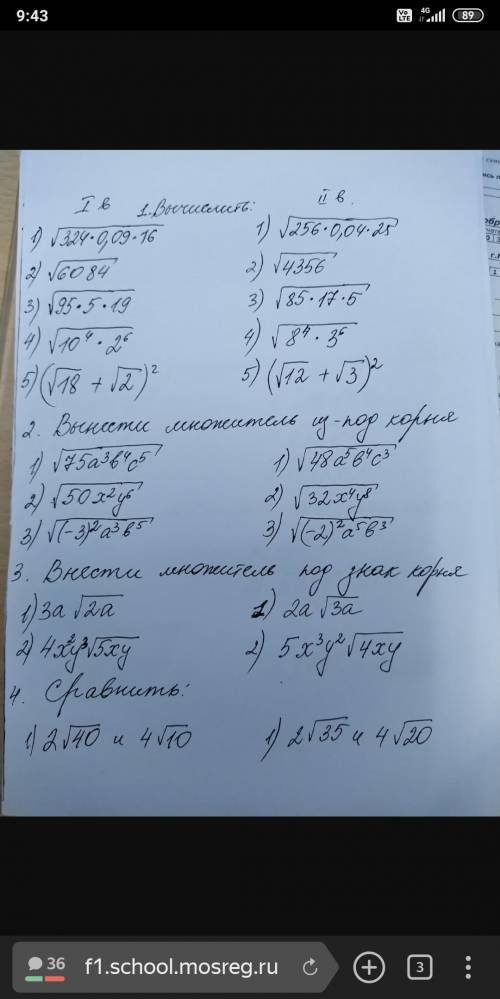 9:43
Vo LTE 4G 89
I в 1. Вычислить: II в.
1) √324·0,09·16 1) √256·0,04·25
2) √6084 2) √4356
3) √95·5·19 3) √85·17·5
4) √10⁴·2⁶ 4) √8⁴·3⁶
5) (√18 + √2)² 5) (√12 + √3)²
2. Вынести множитель из-под корня
1) √75a³b⁴c⁵ 1) √48a⁵b⁴c³
2) √50x²y⁶ 2) √32x⁴y⁸
3) √(-3)²a³b⁵ 3) √(-2)²a⁵b³
3. Внести множитель под знак корня
1) 3a √2a 1) 2a √3a
2) 4x²y³√5xy 2) 5x³y²√4xy
4. Сравнить:
1) 2√40 и 4√10 1) 2√35 и 4√20
36 f1.school.mosreg.ru 3